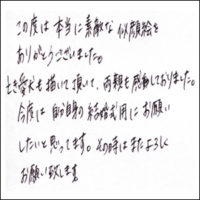 この度は本当に素敵な似顔絵を
ありがとうございました。
亡き愛犬も描いて頂いて、両親も感動しておりました。
今度は自分自身の結婚式用にお願い
したいと思ってます。その時はまたよろしく
お願い致します。